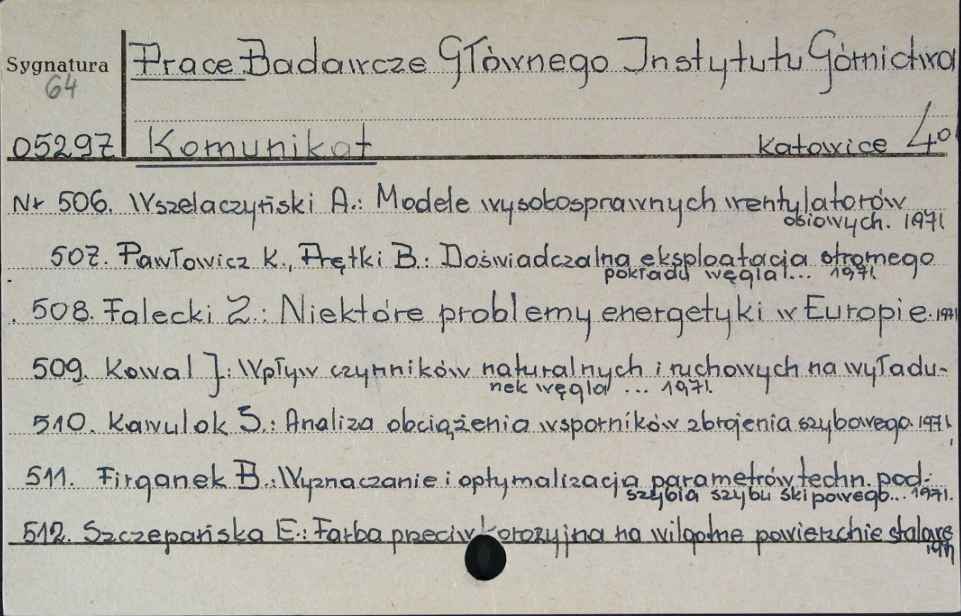 Sygnatura
64
Prace Badawcze Głównego Instytutu Górnictwa
05297
Komunikat
Katowice 4°
Nr 506. Wszelaczyński A.: Modele wysokosprawnych wentylatorów
osiowych. 1971
507. Pawłowicz K., Prętki B.: Doświadczalna eksploatacja stromego
pokładu węgla... 1971.
508. Falecki Z.: Niektóre problemy energetyki w Europie. 1971
509. Kowal J.: Wpływ czynników naturalnych i ruchowych na wyładu-
nek węgla ... 1971.
510. Kawulok S.: Analiza obciążenia wsporników zbrojenia szybowego. 1971
511. Firganek B.: Wyznaczanie i optymalizacja parametrów techn. pod-
szybia szybu skipowego... 1971.
512. Szczepańska E.: Farba przeciwkorozyjna na wilgotne powierzchnie stalowe
1971